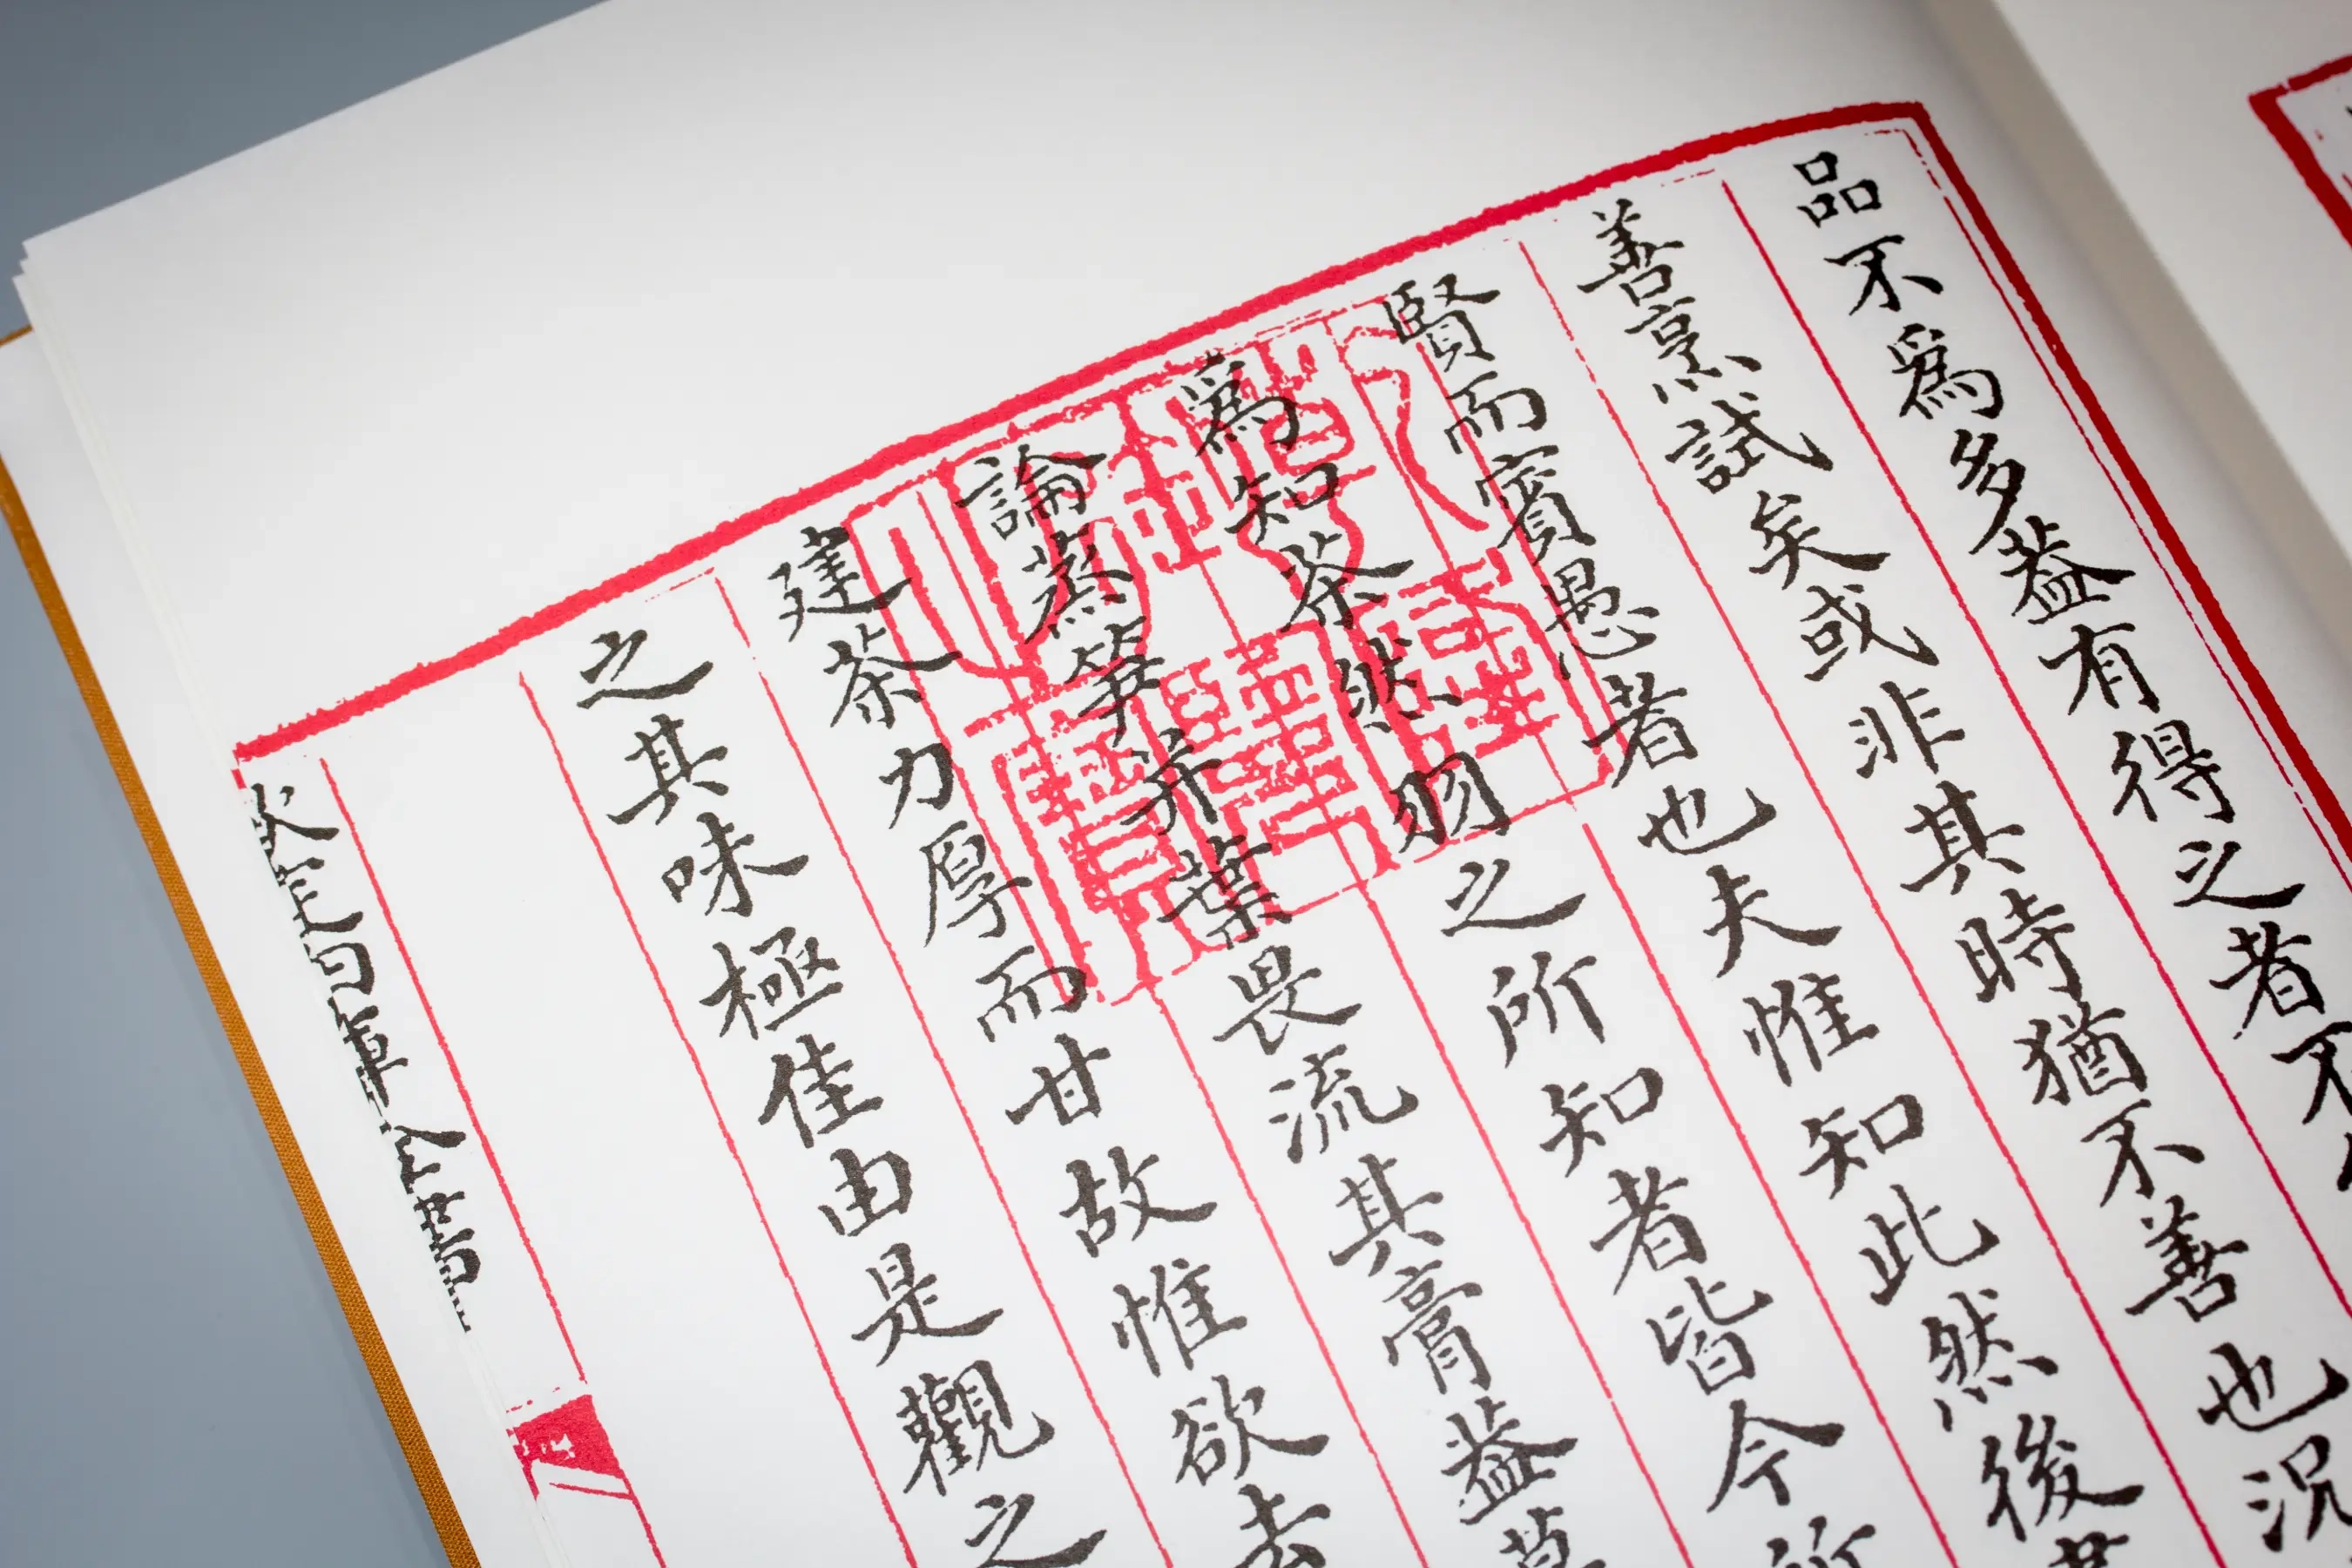 品不為多葢有得之者不
善烹試矣或非其時猶不善也況
賢而賓愚者也夫惟知此然後
為知茶然羽之所知者皆今所
論蒸筍并葉畏流其膏葢草
建茶力厚而甘故惟欲去
之其味極佳由是觀之